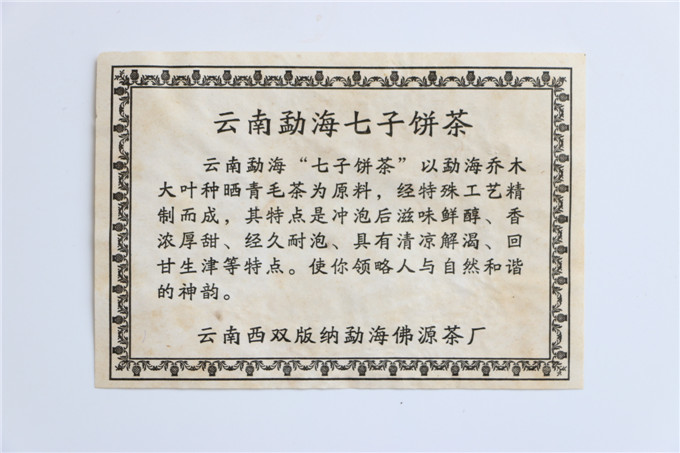 云南勐海七子饼茶
云南勐海“七子饼茶”以勐海乔木
大叶种晒青毛茶为原料，经特殊工艺精
制而成，其特点是冲泡后滋味鲜醇、香
浓厚甜、经久耐泡、具有清凉解渴、回
甘生津等特点。使你领略人与自然和谐
的神韵。
云南西双版纳勐海佛源茶厂